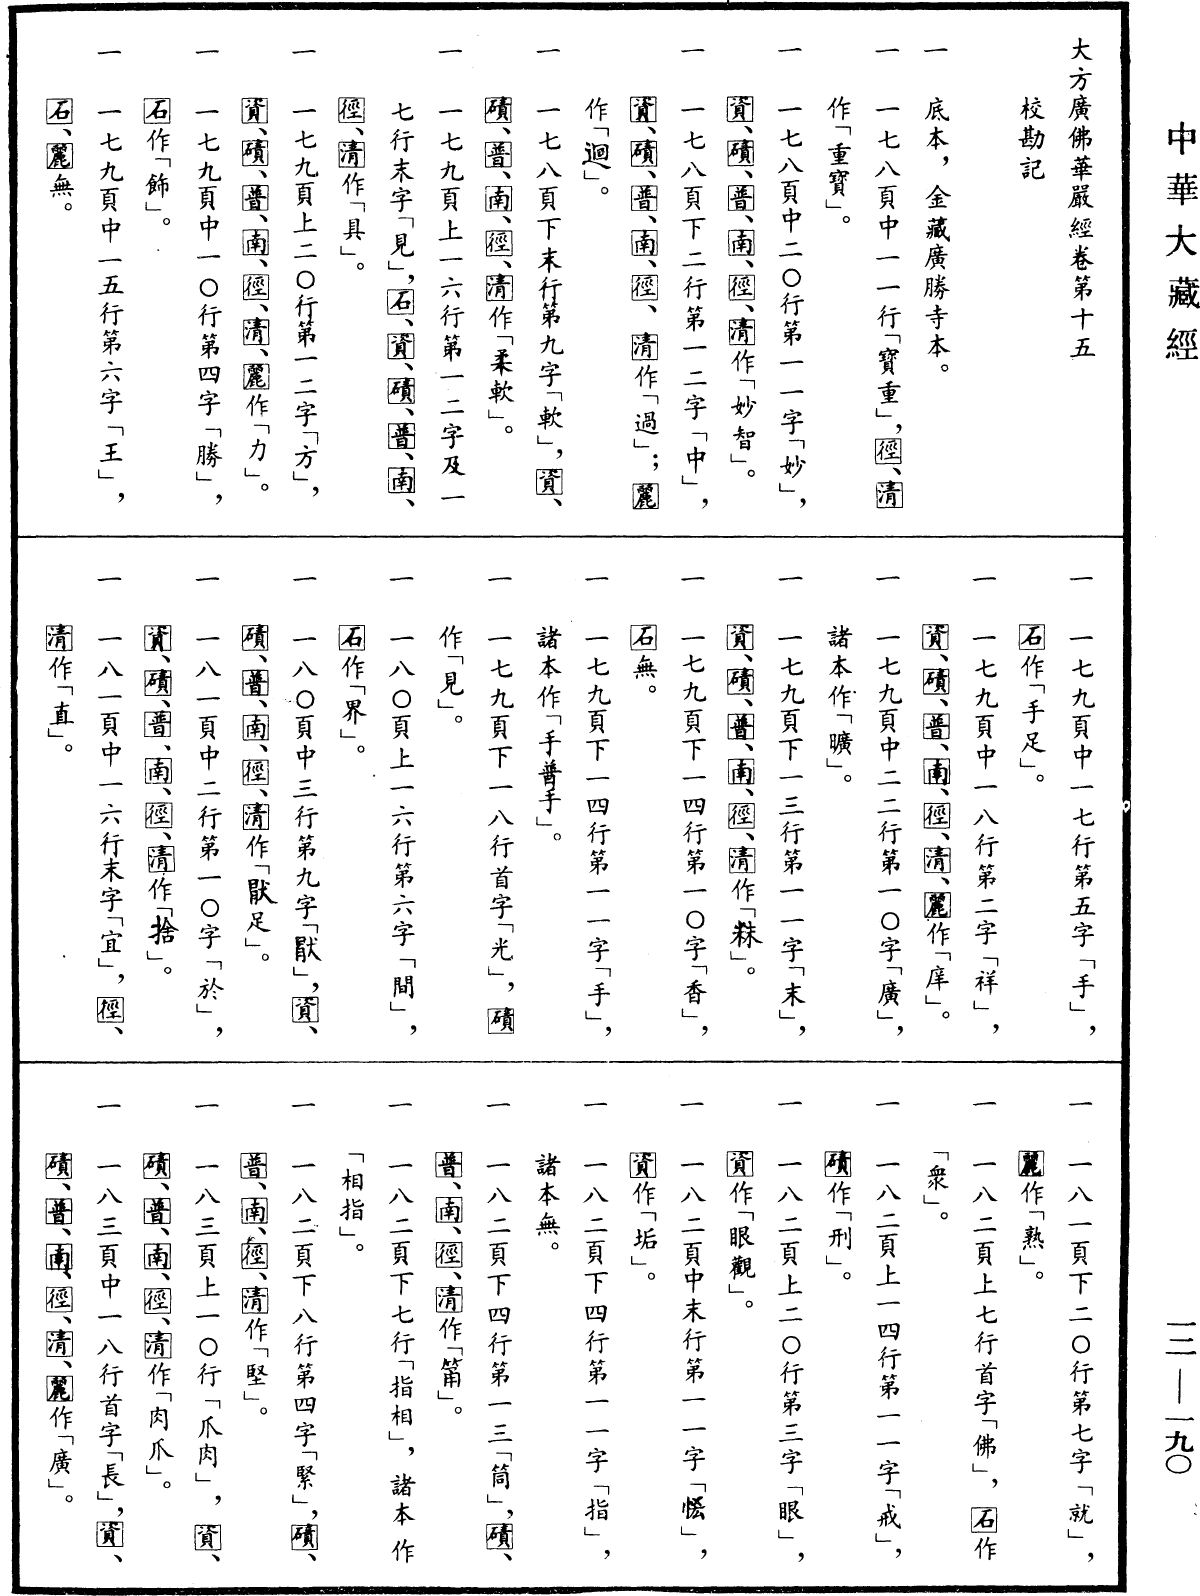 中華大藏經
大方廣佛華嚴經卷第十五
校勘記
一 底本，金藏廣勝寺本。
一 一七八頁中一一行「寶重」，徑、清
作「重寶」。
一 一七八頁中二〇行第一一字「妙」，
資、磧、普、南、徑、清作「妙智」。
一 一七八頁下二行第一二字「中」，
資、磧、普、南、徑、清作「過」；麗
作「迴」。
一 一七八頁下末行第九字「軟」，資、
磧、普、南、徑、清作「柔軟」。
一 一七九頁上一六行第一二字及一
七行末字「見」，石、資、磧、普、南、
徑、清作「具」。
一 一七九頁上二〇行第一二字「方」，
資、磧、普、南、徑、清、麗作「力」。
一 一七九頁中一〇行第四字「勝」，
石作「飾」。
一 一七九頁中一五行第六字「王」，
石、麗無。
一 一七九頁中一七行第五字「手」，
石作「手足」。
一 一七九頁中一八行第二字「祥」，
資、磧、普、南、徑、清、麗作「庠」。
一 一七九頁中二二行第一〇字「廣」，
諸本作「曠」。
一 一七九頁下一三行第一一字「末」，
資、磧、普、南、徑、清作「粖」。
一 一七九頁下一四行第一〇字「香」，
石無。
一 一七九頁下一四行第一一字「手」，
諸本作「手普手」。
一 一七九頁下一八行首字「光」，磧
作「見」。
一 一八〇頁上一六行第六字「間」，
石作「界」。
一 一八〇頁中三行第九字「猒」，資、
磧、普、南、徑、清作「猒足」。
一 一八一頁中二行第一〇字「於」，
資、磧、普、南、徑、清作「捨」。
一 一八一頁中一六行末字「宜」，徑、
清作「直」。
一 一八一頁下二〇行第七字「就」，
麗作「熟」。
一 一八二頁上七行首字「佛」，石作
「衆」。
一 一八二頁上一四行第一一字「戒」，
磧作「刑」。
一 一八二頁上二〇行第三字「眼」，
資作「眼觀」。
一 一八二頁中末行第一一字「恡」，
資作「垢」。
一 一八二頁下四行第一一字「指」，
諸本無。
一 一八二頁下四行第一三「筒」，磧、
普、南、徑、清作「筩」。
一 一八二頁下七行「指相」，諸本作
「相指」。
一 一八二頁下八行第四字「緊」，磧、
普、南、徑、清作「堅」。
一 一八三頁上一〇行「爪肉」，資、
磧、普、南、徑、清作「肉爪」。
一 一八三頁中一八行首字「長」，資、
磧、普、南、徑、清、麗作「廣」。
一二—一九〇